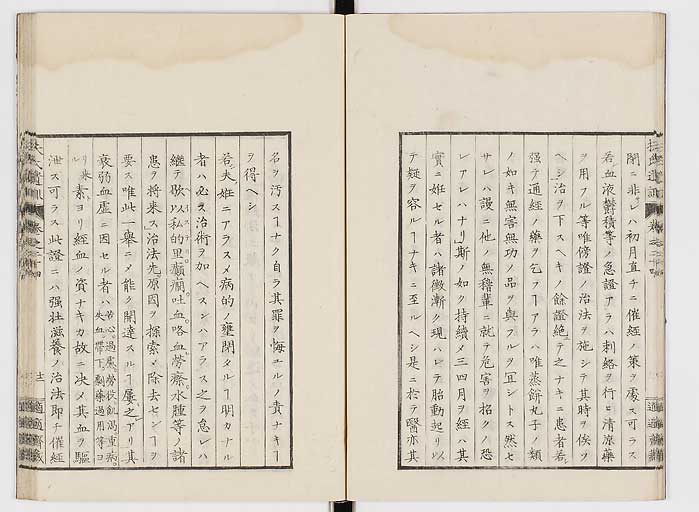 閉ニ非レハ初月直チニ催經ノ策ヲ處ス可ラス
若血液欝積等ノ急證アラハ刺絡ヲ行ヒ清凉藥
ヲ用フル等唯傍證ノ治法ヲ施シテ其時ヲ俟ツ
ヘシ治ヲ下スヘキノ餘證絶テ之ナキニ患者若
強テ通經ノ藥ヲ乞フヿアラハ唯蒸餅丸子ノ類
ノ如キ無害無功ノ品ヲ與フルヲ冝シトス然セ
サレハ謾ニ他ノ無稽輩ニ就テ危害ヲ招クノ恐
レアレハナリ斯ノ如ク持續メ三四月ヲ經ハ其
實ニ妊セル者ハ諸徴漸ク現ハレテ胎動起リ以
テ疑ヲ容ルヿナキニ至ルヘシ是ニ於テ醫亦其
名ヲ汚スヿナク自ラ其罪ヲ悔ユルノ責ナキヿ
ヲ得ヘシ
若夫妊ニアラスメ病的ノ壅閉タルヿ明カナル
者ハ必ス治術ヲ加ヘスンハアラス之ヲ怠レハ
繼テ歇以私的里癲癇吐血咯血勞瘵水腫等ノ諸
患ヲ將來ス治法先原因ヲ探索メ除去センヿヲ
要ス唯此一舉ニメ能ク開達スルヿ屢之アリ其
衰弱血虚ニ因セル者ハ
リ來ル素ヨリ經血ノ資ナキカ故ニ决メ其血ヲ驅
泄ス可ラス此證ニハ强壮滋養ノ治法即チ催經
適適齋藏